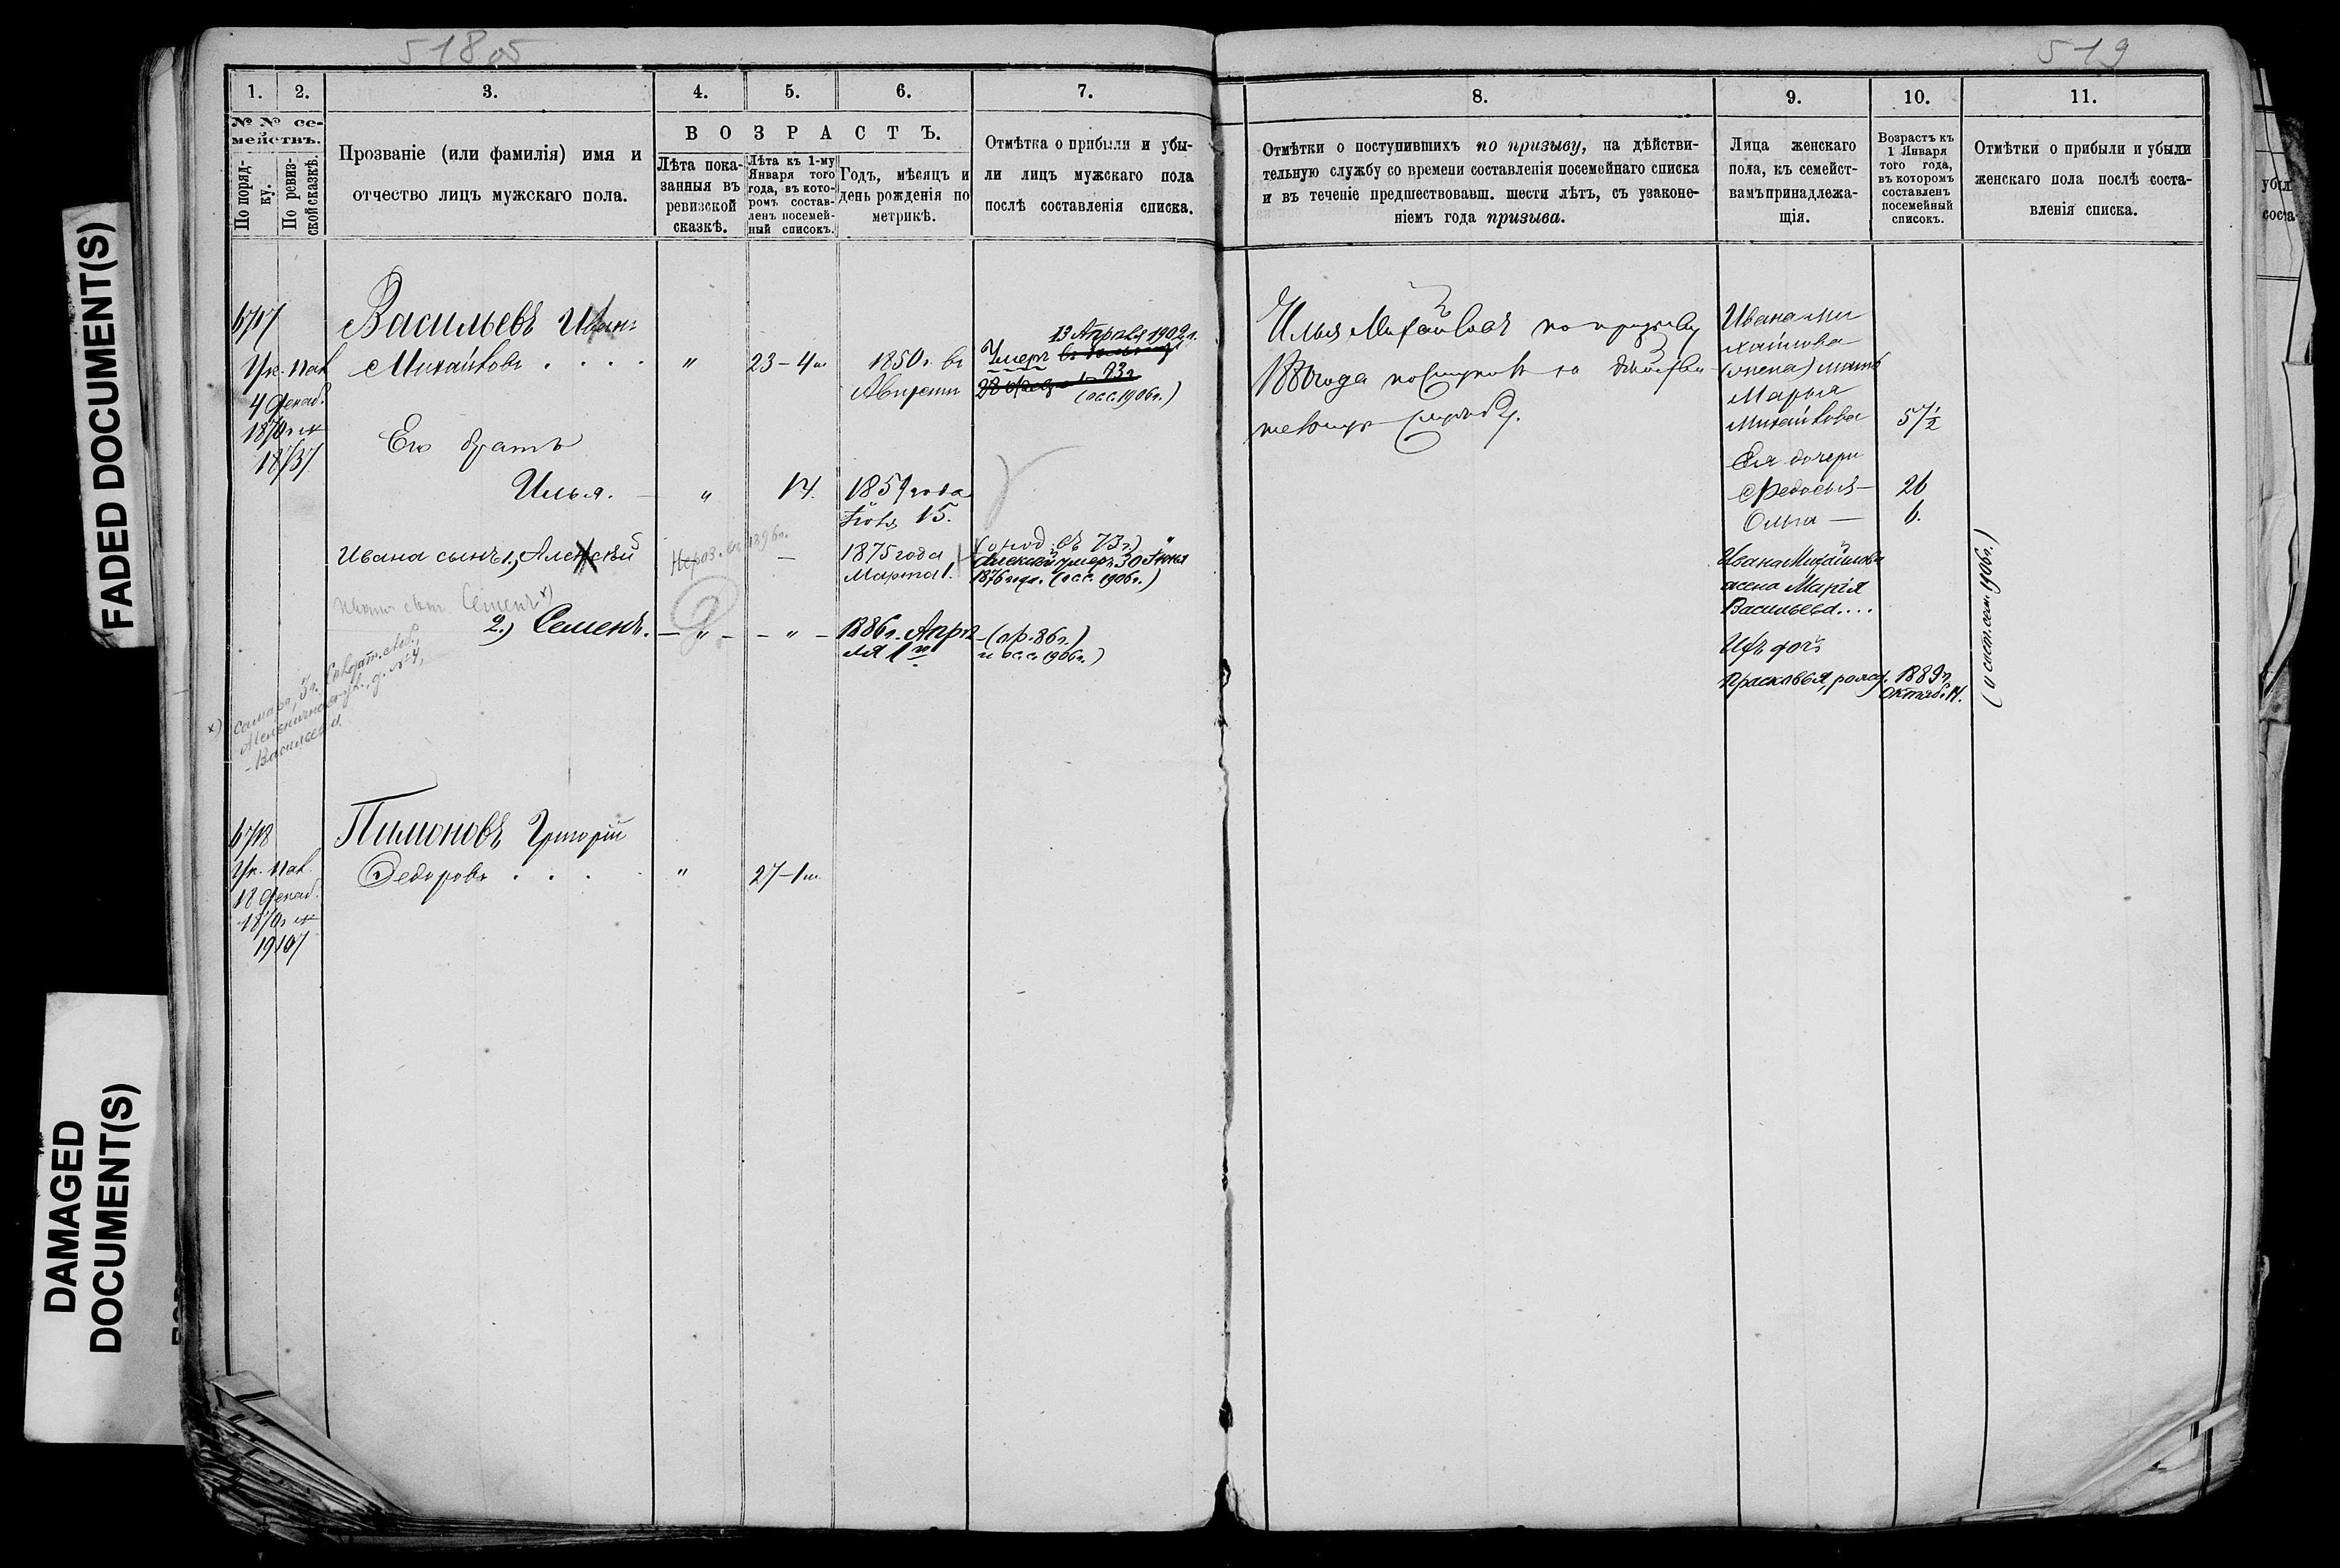 518 об
519
FADED DOCUMENT(S)
DAMAGED
DOCUMENT(S)
1.
2.
3.
4.
5.
6.
7.
№ № се-
мействъ.
По поряд-
ку.
По ревиз-
ской сказкѣ.
Прозваніе (или фамилія) имя и
отчество лицъ мужскаго пола.
ВОЗРАСТЪ.
Лѣта пока-
занныя въ
ревизской
сказкѣ.
Лѣта къ 1-му
Января того
года, въ кото-
ромъ состав-
ленъ посемей-
ный списокъ.
Годъ, мѣсяцъ и
день рожденія по
метрикѣ.
Отмѣтка о прибыли и убы-
ли лицъ мужского пола
послѣ составленія списка.
Васильевъ Иванъ
Михайловъ . . . .
"
23 - 4 м
1850 г. въ
Августѣ
13 Апрѣля 1902 г.
Умеръ
(осс. 1906 г.)
Ук. пал.
4 Декаб.
1870 г. №
18737
Его братъ
Илья.
"
14.
1859 года
Іюля 15.
Ивана сынъ 1.) Алексѣй
—
1875 года
Марта 1.
Алексѣй умеръ 30 Іюня
1876 года. (осс. 1906 г.)
Семенъ x)
2.) Семенъ.
— " —
— " —
1886 г. Апрѣ-
ля 1го
(пр. 86 г.)
и осс. 1906 г.)
Васильевъ.
6718
Ук. пал.
18 Декаб.
1870 г. №
19107
Пимоновъ Григорій
Федоровъ . . . .
"
27 - 1 м
8.
9.
10.
11.
Отмѣтки о поступившихъ по призыву, на дѣйстви-
тельную службу со времени составленія посемейнаго списка
и въ теченіе предшествовавш. шести лѣтъ, съ узаконе-
ніемъ года призыва.
Лица женскаго
пола, къ семейст-
вамъ принадлежа-
щія.
Возрастъ къ
1 Января
того года,
въ которомъ
составленъ
посемейный
списокъ.
Отмѣтки о прибыли и убыли
женскаго пола послѣ соста-
вленія списка.
Илья Михайловъ по призыву
1880 года поступилъ на дѣйстви-
тельную службу.
Ивана Ми-
хайлова
мать
Марья
Михайлова
57 1/2
Ея дочери
Федосья —
26
Ольга —
6.
Ивана Михайлова
жена Марія
Васильева....
Ихъ дочь
Прасковья, рожд. 1889 г.
Октяб. 14.
(и сист. сем. 1906 г.)